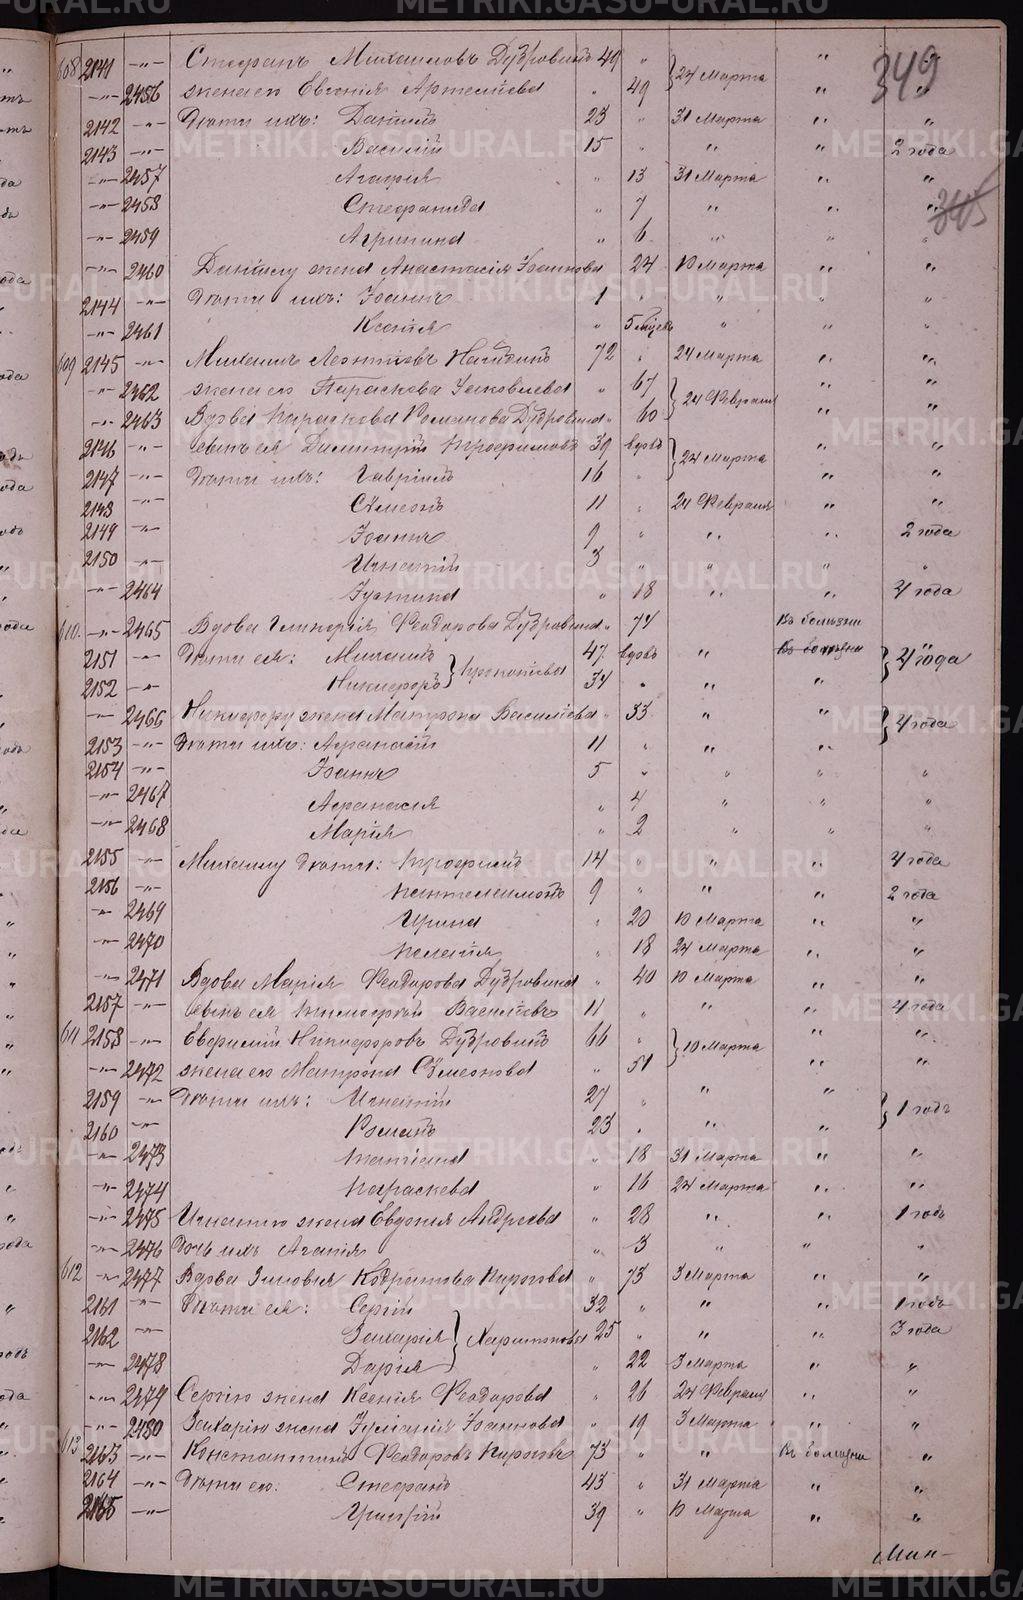 349
345
608 2141 —"— Стефанъ Михаиловъ Дубровинъ 49 " } 24 Марта " "
—"— 2456 жена его Евгенія Артеміева " 49 " "
2142 —"— Дѣти ихъ: Даніилъ 23 " 31 Марта " "
2143 —"— Василій 15 " " " 2 года
—"— 2457 Агафія " 13 31 Марта " "
—"— 2458 Стефанида " 7 " " "
—"— 2459 Агрипина " 6 " " "
—"— 2460 Даніилу жена Анастасія Іоаннова 24 10 Марта " "
2144 —"— Дѣти ихъ: Іоаннъ 1 " " " "
—"— 2461 Ксенія " 5 " "
609 2145 —"— Михаилъ Леонтіевъ 72 " 24 Марта " "
—"— 2462 жена его Параскева Іаковлева " 67 } 24 Февраля " "
—"— 2463 Вдова Параскева Романова Дубровина " 60 " "
2146 —"— сынъ ея Димитрій Трофимовъ 39 вдовъ } 24 Марта " "
2147 —"— Дѣти ихъ: Гавріилъ 16 " " "
2148 —"— Сѵмеонъ 11 " 24 Февраля " "
2149 —"— Іоаннъ 9 " " " 2 года
2150 —"— Игнатій 3 " " " "
—"— 2464 Іустина " 18 " " 4 года
610. —"— 2465 Вдова Гликерія Ѳеодорова Дубровина " 74 Въ болѣзни
2151 —"— Дѣти ея: Михаилъ } Прокопіевы 47 вдовъ " Въ болѣзни } 4 года
2152 —"— Никифоръ 34 " " "
—"— 2466 Никифору жена Матрона Василіева " 33 " " } 4 года
2153 —"— Дѣти ихъ: Аѳанасій 11 " " "
2154 —"— Іоаннъ 5 " " " "
—"— 2467 Аѳанасія " 4 " " "
—"— 2468 Марія " 2 " " "
2155 —"— Михаилу дѣти: Трофимъ 14 " " " 4 года
2156 —"— Пантелеимонъ 9 " " " 2 года
—"— 2469 Ирина " 20 10 Марта " "
—"— 2470 Пелагія " 18 24 Марта " "
—"— 2471 Вдова Марія Ѳеодорова Дубровина " 40 10 Марта " "
2157 —"— сынъ ея Тимоѳей Василіевъ 11 " " " 4 года
611 2158 —"— Евфимій Никифоровъ Дубровинъ 66 " } 10 Марта " "
—"— 2472 жена его Матрона Сѵмеонова " 51 " "
2159 —"— Дѣти ихъ: Игнатій 27 " " " } 1 годъ
2160 —"— Романъ 23 " " "
—"— 2473 Татіана " 18 31 Марта " "
—"— 2474 Параскева " 16 24 Марта " "
—"— 2475 Игнатію жена Евдокія Андреева " 28 " " 1 годъ
—"— 2476 Дочь ихъ Агапія " 3 " " "
612 —"— 2477 Вдова Зиновія Кодратова Пирогова " 73 3 Марта " "
2161 —"— Дѣти ея: Сергій } Харитоновы 32 " " " 1 годъ
2162 —"— Захарія 25 " " " 3 года
—"— 2478 Дарія " 22 3 Марта " "
—"— 2479 Сергію жена Ксенія Ѳеодорова " 26 24 Февраля " "
—"— 2480 Захарію жена Іуліанія Іоаннова " 19 3 Марта " "
613 2163 —"— Константинъ Ѳеодоровъ Пироговъ 73 " " Въ болѣзни "
2164 —"— Дѣти его: Стефанъ 43 " 31 Марта " "
2165 —"— Григорій 39 " 10 Марта " "